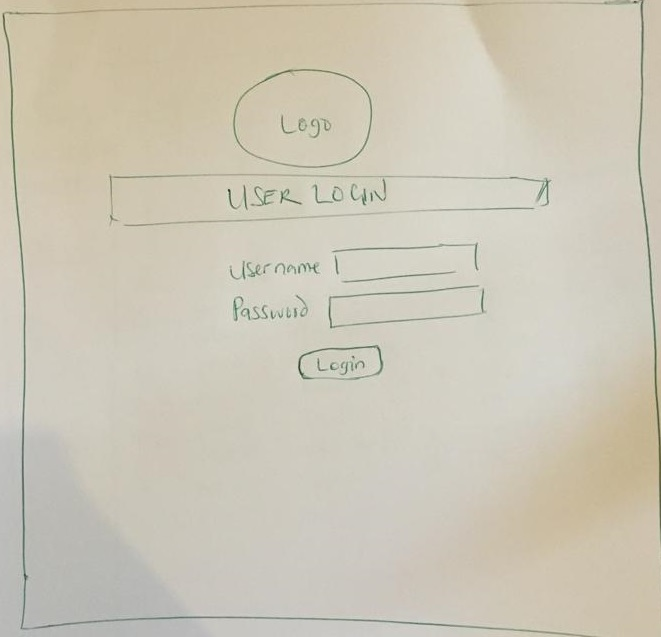 Logo
USER LOGIN
Username
Password
Login